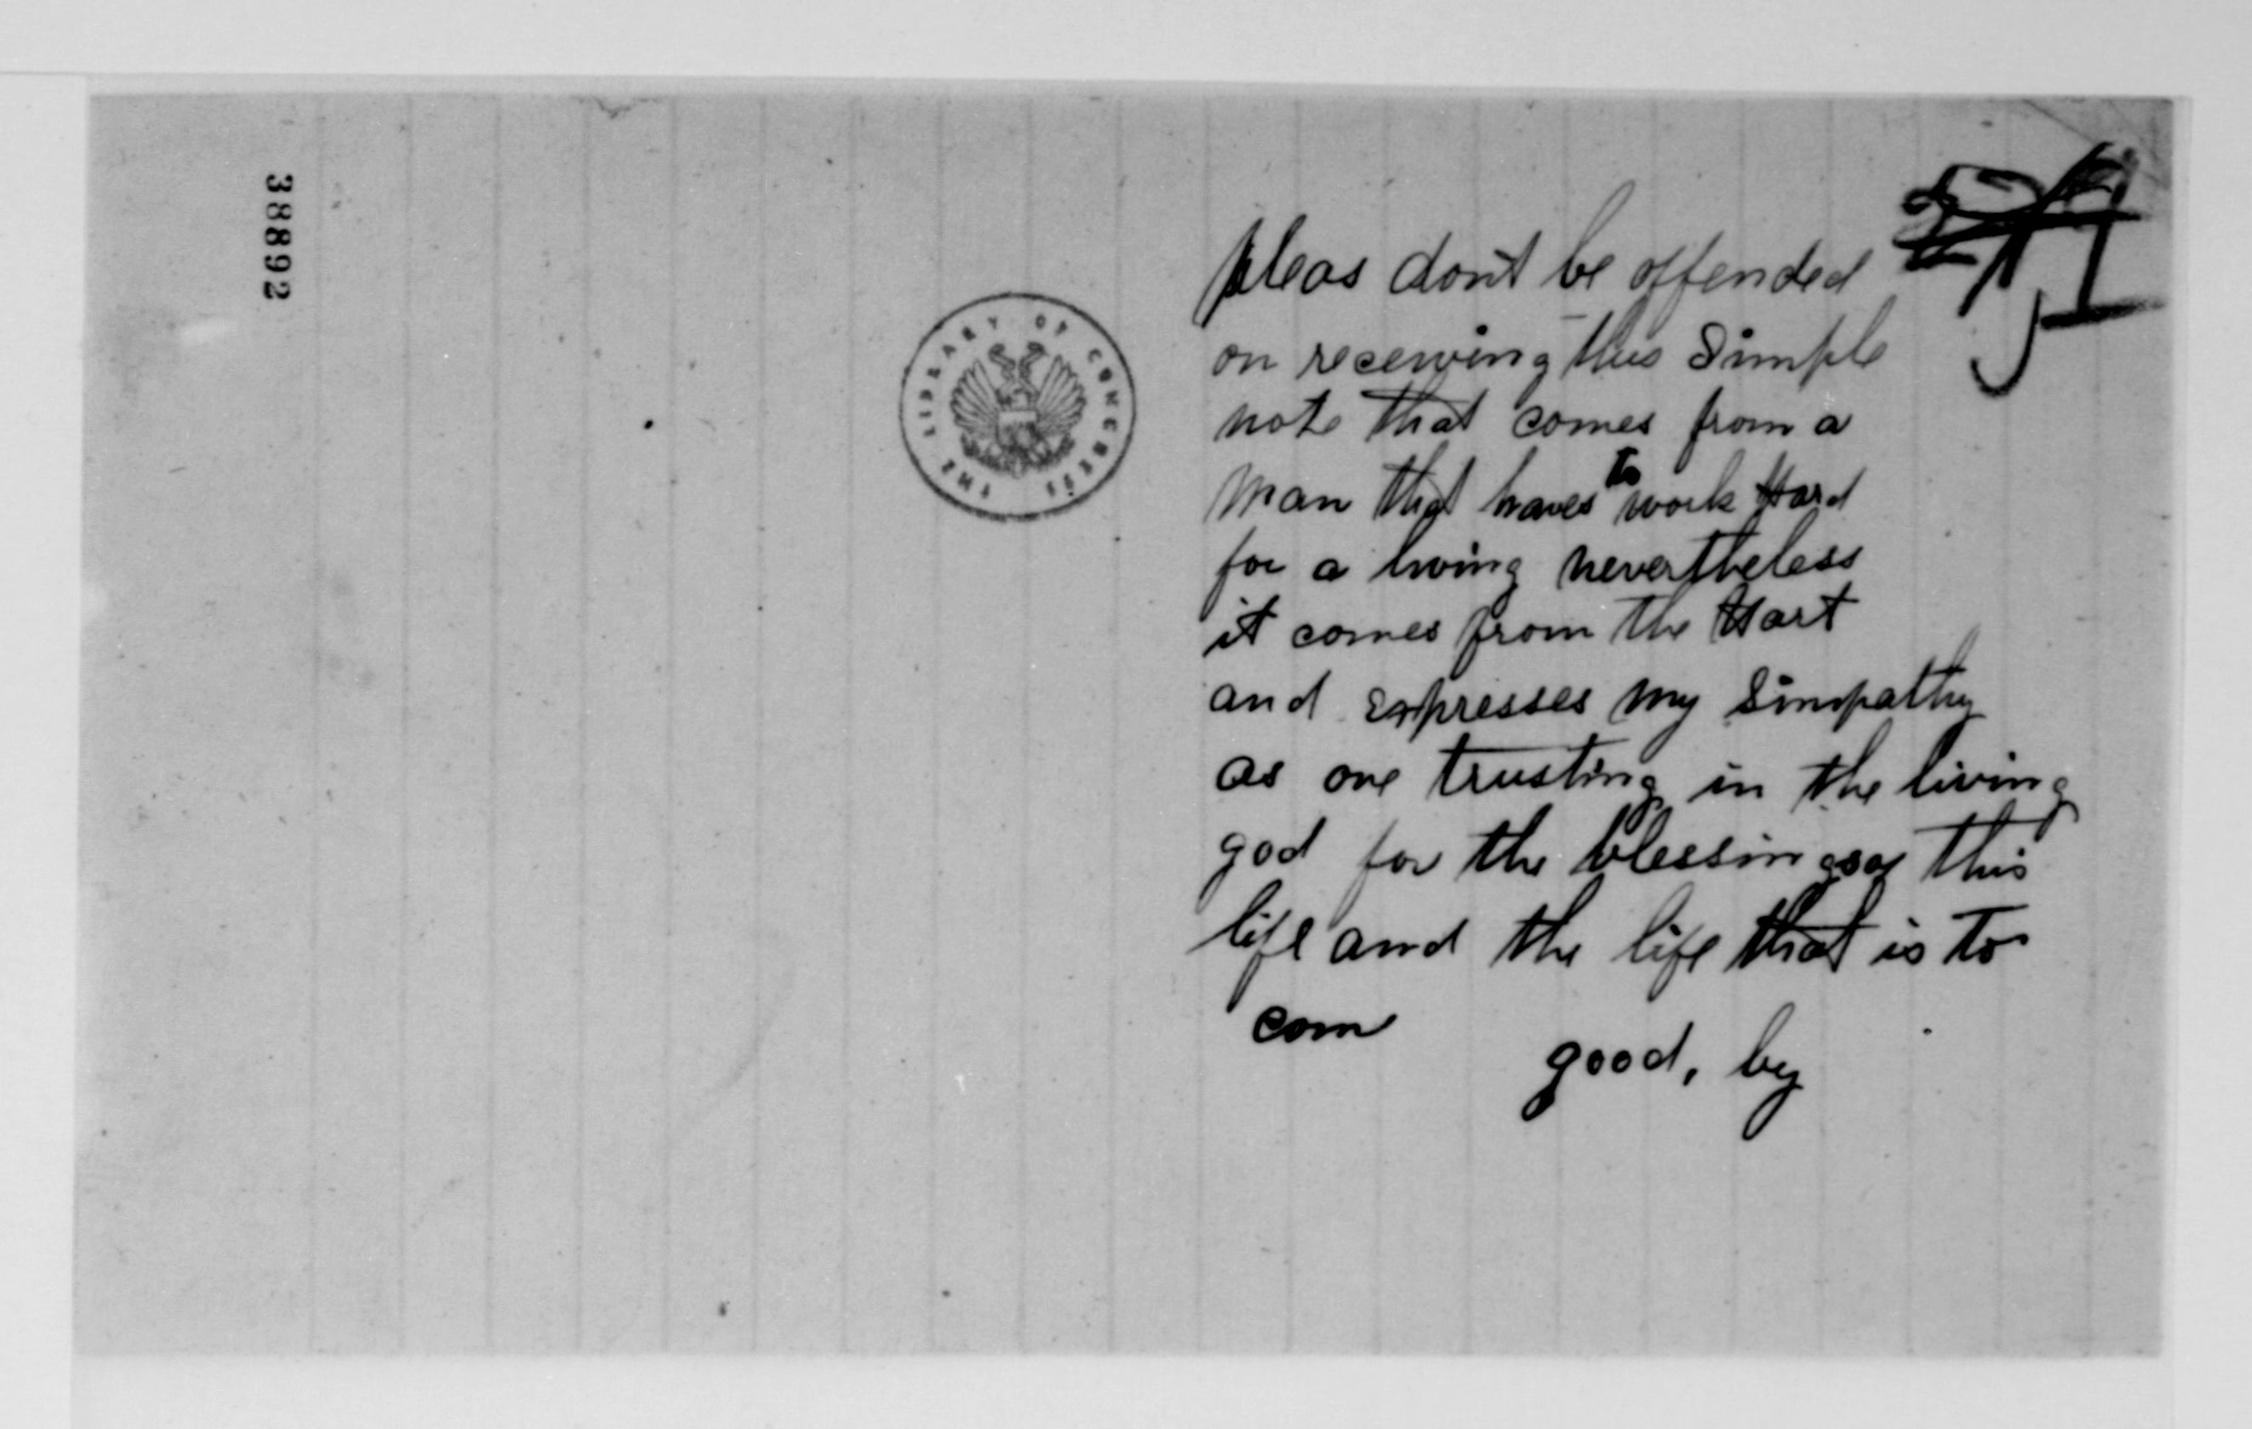 38892
THE LIBRARY OF CONGRESS
pleas dont be offended
on receiving this Simple
note that comes from a
man that haves to work Hard
for a living nevertheless
it comes from the Hart
and expresses my Simpathy
as one trusting in the living
god for the blessings of this
life and the life that is to
com
good, by